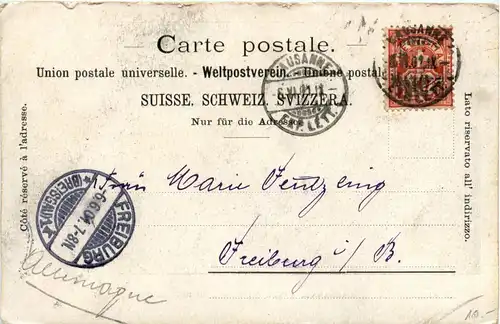 Carte postale.
Union postale universelle. - Weltpostverein. - Unione postale
SUISSE. SCHWEIZ. SVIZZERA.
Nur für die Adresse.
Côté réservé à l'adresse.
Lato riservato all' indirizzo.
LAUSANNE
EXP. LETT.
LAUSANNE
FREIBURG
(BREISGAU)
7-8N.
Frau Marie
Freiburg i/B.
Allemagne
10.-